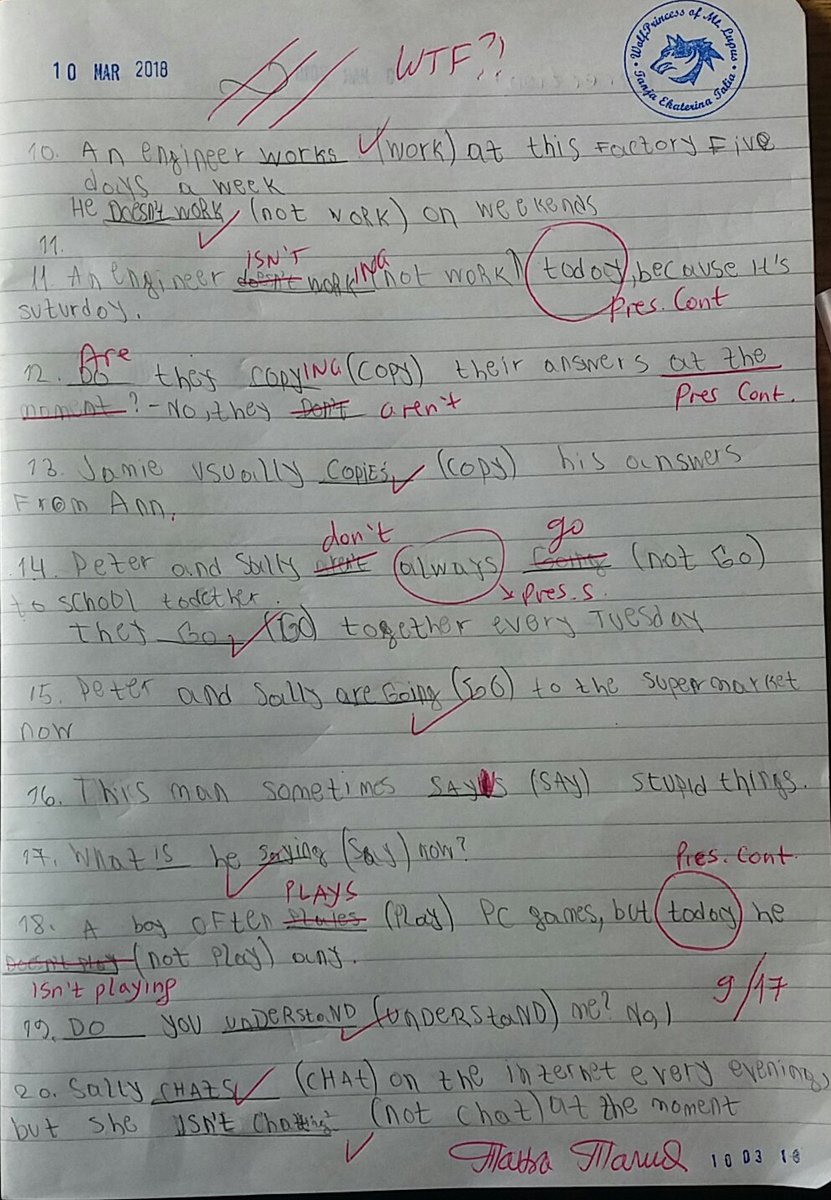 10 MAR 2018
WTF?!
WolfPrincess of Mt. Lupus
Tanja Ekaterina Talia
10. An engineer works (work) at this Factory Five
days a week
He Doesn't work (not work) on weekends
11.
ISN'T
11. An engineer doesn't workING (not work) today, because it's
Pres. Cont
suturdoy.
Are
12. Do they copyING (copy) their answers at the
Pres Cont.
moment? - No, they Don't aren't
13. Jamie usually copies (copy) his answers
From Ann.
don't go
14. Peter and Sally arent always Going (not Go)
Pres. S.
to school together.
they Go (Go) together every Tuesday
15. Peter and Sally are Going (GO) to the supermarket
now
16. This man sometimes says (SAY) stupid things.
17. What is he saying (say) now?
Pres. Cont.
PLAYS
18. A boy often plaies (Play) PC games, but today he
Doesn't play (not play) any.
isn't playing
9/17
19. DO you understand (understand) me? No, I
20. Sally chats (chat) on the internet every evening,
but she isn't chatting (not chat) at the moment
Тања Талиа 10 03 18